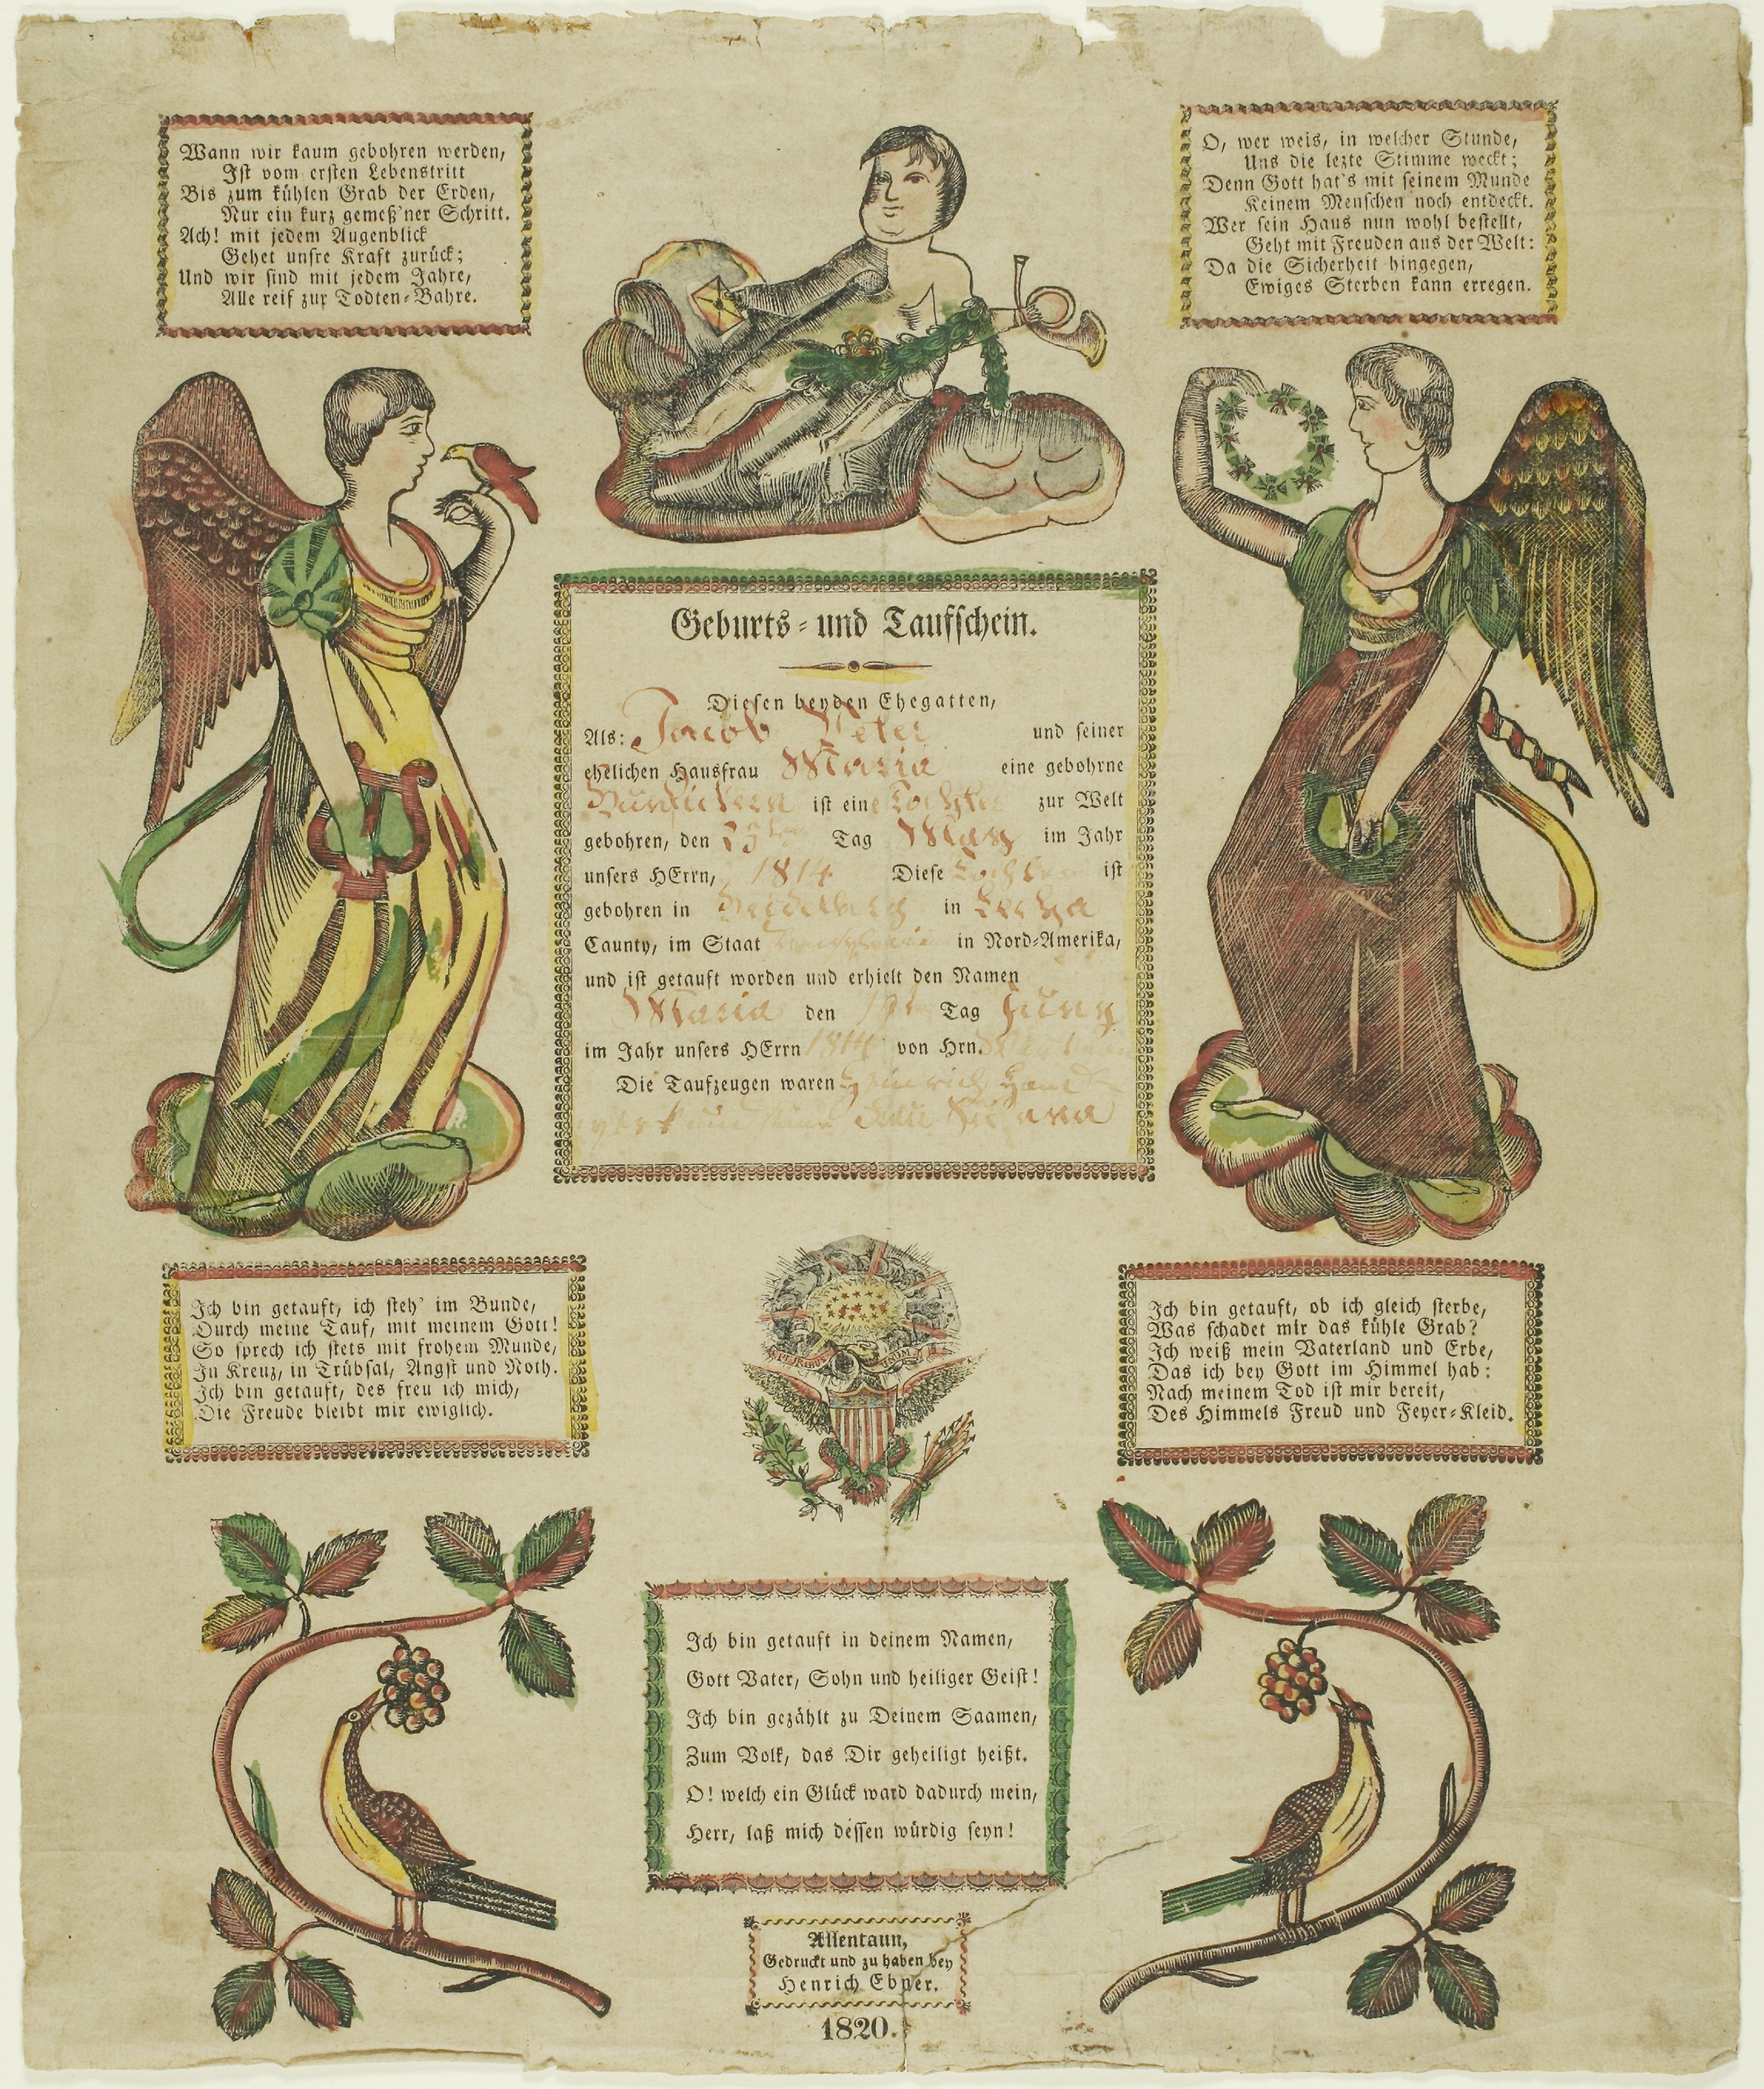 Wann wir kaum gebohren werden,
Ist vom ersten Lebenstritt
Bis zum kühlen Grab der Erden,
Nur ein kurz gemeß'ner Schritt.
Ach! mit jedem Augenblick
Gehet unsre Kraft zurück;
Und wir sind mit jedem Jahre,
Alle reif zur Todten-Bahre.
O, wer weis, in welcher Stunde,
Uns die lezte Stimme weckt;
Denn Gott hat's mit seinem Munde
Keinem Menschen noch entdeckt.
Wer sein Haus nun wohl bestellt,
Geht mit Freuden aus der Welt:
Da die Sicherheit hingegen,
Ewiges Sterben kann erregen.
Geburts- und Taufschein.
Diesen beyden Ehegatten,
Als: Jacob Peter und seiner
ehelichen Hausfrau Maria eine gebohrne
ist eine Tochter zur Welt
gebohren, den Tag May im Jahr
unsers HErrn, 1814 Diese Tochter ist
gebohren in Heidelberg in Lecha
Caunty, im Staat in Nord-Amerika,
und ist getauft worden und erhielt den Namen
Maria den Tag Juny
im Jahr unsers HErrn 1814 von Hrn.
Die Taufzeugen waren Heinrich
und seine Frau
Ich bin getauft, ich steh' im Bunde,
Durch meine Tauf, mit meinem Gott!
So sprech ich stets mit frohem Munde,
In Kreuz, in Trübsal, Angst und Noth.
Ich bin getauft, des freu ich mich,
Die Freude bleibt mir ewiglich.
E PLURIBUS UNUM
Ich bin getauft, ob ich gleich sterbe,
Was schadet mir das kühle Grab?
Ich weiß mein Vaterland und Erbe,
Das ich bey Gott im Himmel hab:
Nach meinem Tod ist mir bereit,
Des Himmels Freud und Feyer-Kleid.
Ich bin getauft in deinem Namen,
Gott Vater, Sohn und heiliger Geist!
Ich bin gezählt zu Deinem Saamen,
Zum Volk, das Dir geheiligt heißt.
O! welch ein Glück ward dadurch mein,
Herr, laß mich dessen würdig seyn!
Allentaun,
Gedruckt und zu haben bey
Henrich Ebner.
1820.